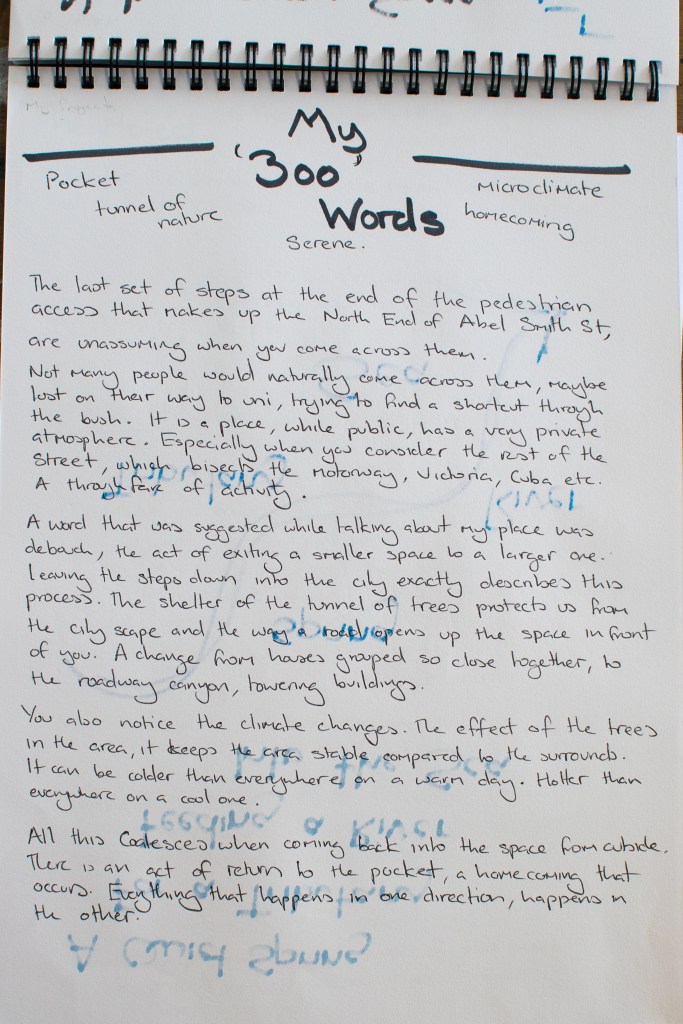 My
'300'
Words
Pocket
tunnel of
nature
Microclimate
homecoming
Serene.
The last set of steps at the end of the pedestrian
access that makes up the North End of Abel Smith St,
are unassuming when you come across them.
Not many people would naturally come across them, maybe
lost on their way to uni, trying to find a shortcut through
the bush. It is a place, while public, has a very private
atmosphere. Especially when you consider the rest of the
street, which bisects the Motorway, Victoria, Cuba etc.
A throughfare of activity.
A word that was suggested while talking about my place was
debouch, the act of exiting a smaller space to a larger one.
Leaving the steps down into the city exactly describes this
process. The shelter of the tunnel of trees protects us from
the city scape and the way a road opens up the space in front
of you. A change from houses grouped so close together, to
the roadway canyon, towering buildings.
You also notice the climate changes. The effect of the trees
in the area, it keeps the area stable compared to the surrounds.
It can be colder than everywhere on a warm day. Hotter than
everywhere on a cool one.
All this Coalesces when coming back into the space from outside.
There is an act of return to the pocket, a homecoming that
occurs. Everything that happens in one direction, happens in
the other.
A Quiet Spring